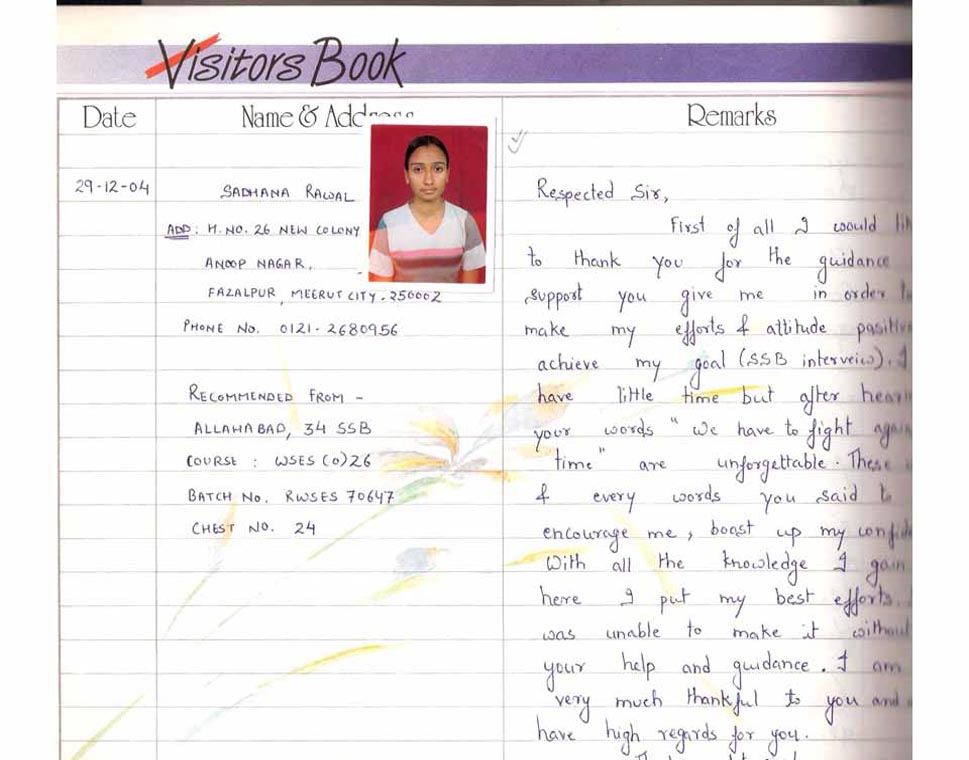 Visitors Book
Date
Name & Address
Remarks
29-12-04
SADHANA RAWAL
ADD : H. NO. 26 NEW COLONY
ANOOP NAGAR,
FAZALPUR, MEERUT CITY - 250002
PHONE NO. 0121 - 2680956
RECOMMENDED FROM -
ALLAHABAD, 34 SSB
COURSE : WSES (O) 26
BATCH NO. RWSES 70647
CHEST NO. 24
Respected Sir,
First of all I would
to thank you for the guidance
support you give me in order
make my efforts & attitude positive
achieve my goal (SSB interveiw). I
have little time but after
your words " We have to fight
time" are unforgettable. These
& every words you said to
encourage me, boast up my
With all the knowledge I gain
here I put my best efforts.
was unable to make it without
your help and guidance. I am
very much thankful to you and
have high regards for you.